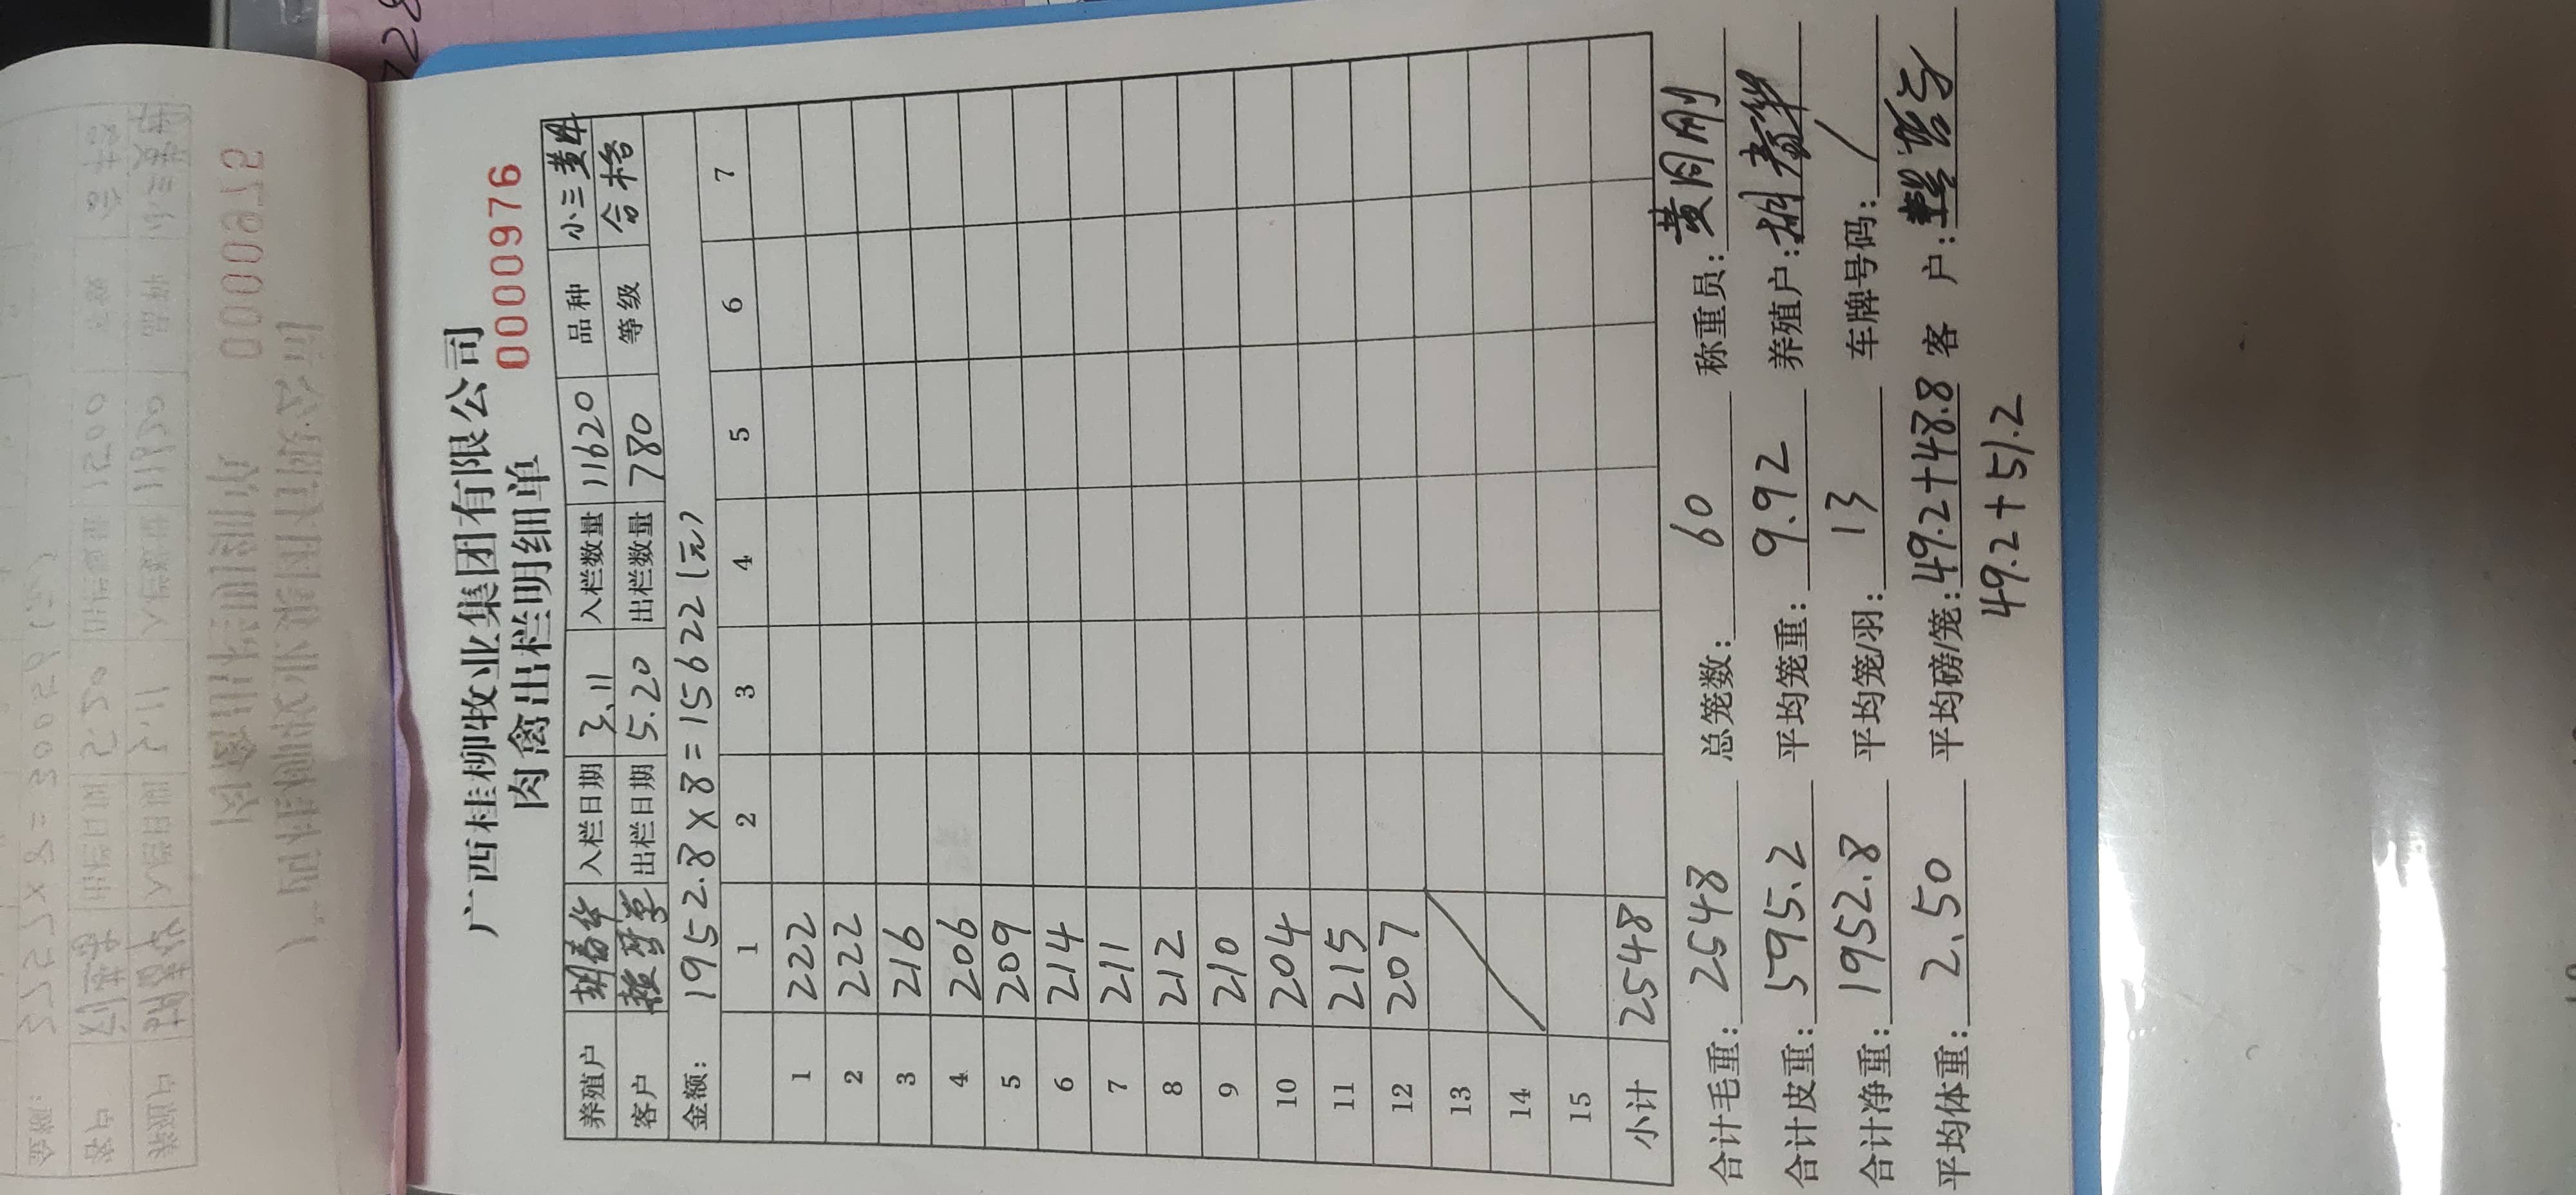 广西桂柳牧业集团有限公司
肉禽出栏明细单 0000976
养殖户 胡春华 入栏日期 3.11 入栏数量 11620 品种 小三黄
客户 出栏日期 5.20 出栏数量 780 等级 合格
金额: 1952.8×8=15622(元)
1 2 3 4 5 6 7
1 222
2 222
3 216
4 206
5 209
6 214
7 211
8 212
9 210
10 204
11 215
12 207
13
14
15
小计 2548
合计毛重: 2548 总笼数: 60 称重员: 黄同刚
合计皮重: 595.2 平均笼重: 9.92 养殖户: 胡春华
合计净重: 1952.8 平均笼/羽: 13 车牌号码: /
平均体重: 2.50 平均磅/笼: 49.2+48.8 客 户:
49.2+51.2